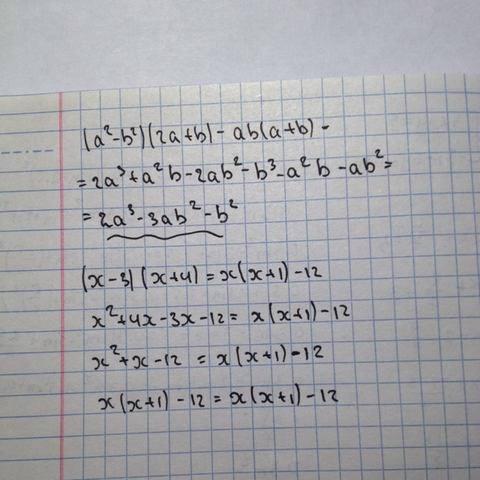 (a²-b²)(2a+b)-ab(a+b)-
=2a³+a²b-2ab²-b³-a²b-ab²=
=2a³-3ab²-b²
(x-3)(x+4)=x(x+1)-12
x²+4x-3x-12=x(x+1)-12
x²+x-12=x(x+1)-12
x(x+1)-12=x(x+1)-12